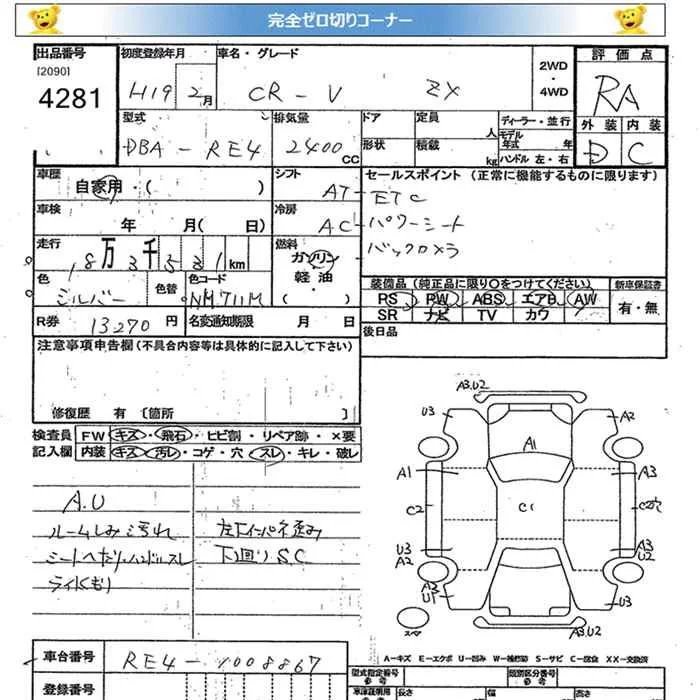 完全ゼロ切りコーナー
出品番号
[2090]
4281
初度登録年月
H19 2月
車名・グレード
CR-V ZX
2WD
・
4WD
評価点
RA
外装 内装
D C
型式
DBA-RE4
排気量
2400cc
ドア
定員
人
形状
積載
kg
ディーラー・並行
モデル年式 年
ハンドル 左・右
車歴
自家用・( )
シフト
AT
セールスポイント (正常に機能するものに限ります)
ETC
パワーシート
バックカメラ
車検
年 月( 日)
冷房
AC
走行
18万3千531km
燃料
ガソリン
軽油
( )
色
シルバー
色替
色コード
NM711M
装備品 (純正品に限り○をつけてください)
PS PW ABS エアB AW
SR ナビ TV カワ
新車保証書
有・無
R券 13270円
名変通知期限 月 日
後日品
注意事項申告欄 (不具合内容等は具体的に記入して下さい)
修復歴 有 〔箇所 〕
検査員記入欄
FW キズ・飛石・ヒビ割・リペア跡・×要
内装 キズ・汚レ・コゲ・穴・スレ・キレ・破レ
A.U
ルームしみ汚れ
シートへたり・ハンドルスレ
ライトくもり
左下インパネ歪み
下廻りS.C
A3.U2
U3
A2
A1
A1
A3
C2
C1
C2穴
U3
A2
A3
U2
A3
U1
U3
スペア
A3.U2
A－キズ E－エクボ U－凹み W－補修跡 S－サビ C－腐食 XX－交換済
車台番号
RE4-1008867
登録番号
型式指定番号
参考
類別区分番号
参考
車庫証明用
参考
長さ
幅
高さ